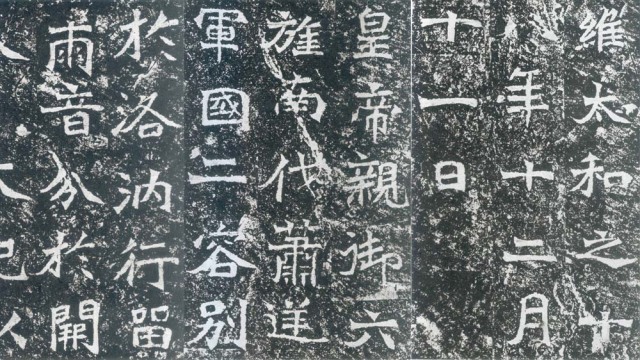 維太和之十
八年十二月
十一日
皇帝親御六
旌南伐蕭逆
軍國二容別
於洛汭行留
雨音分於開